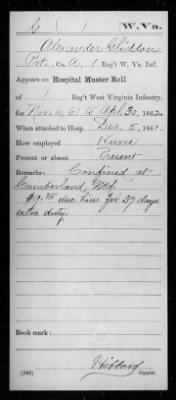 G | 1 | W. Va.
Alexander Gliddon
Pvt., Co. A, 1 Reg't W. Va. Inf.
Appears on Hospital Muster Roll
of 1 Reg't West Virginia Infantry,
for Nov. 6, 61 to Apl. 30, 1862.
When attached to Hosp. Dec. 5, 1861.
How employed Nurse
Present or absent Present
Remarks: Confined at
Cumberland, Md.
$9.25 due him for 37 days
extra duty.
Book mark:
Hibbard
Copyist.